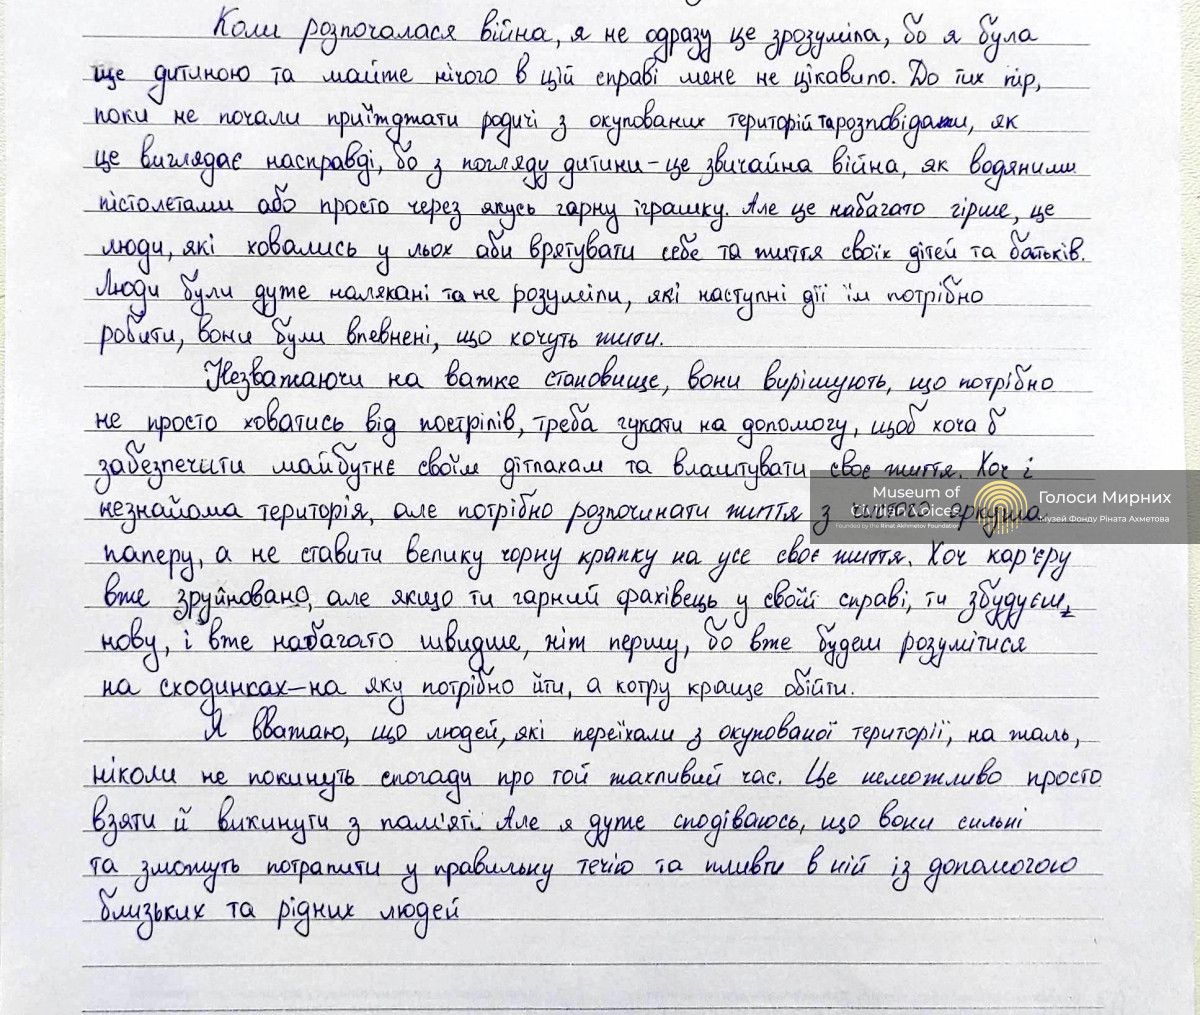 Коли розпочалася війна, я не одразу це зрозуміла, бо я була
ще дитиною та майже нічого в цій справі мене не цікавило. До тих пір,
поки не почали приїжджати родичі з окупованих територій та розповідати, як
це виглядає насправді, бо з погляду дитини - це звичайна війна, як водяними
пістолетами або просто через якусь гарну іграшку. Але це набагато гірше, це
люди, які ховались у льох аби врятувати себе та життя своїх дітей та батьків.
Люди були дуже налякані та не розуміли, які наступні дії їм потрібно
робити, вони були впевнені, що хочуть жити.
Незважаючи на важке становище, вони вирішують, що потрібно
не просто ховатись від пострілів, треба гукати на допомогу, щоб хоча б
забезпечити майбутнє своїм дітлахам та влаштувати своє життя. Хоч і
незнайома територія, але потрібно розпочинати життя з чистого аркуша
паперу, а не ставити велику чорну крапку на усе своє життя. Хоч кар'єру
вже зруйновано, але якщо ти гарний фахівець у своїй справі, ти збудуєш
нову, і вже набагато швидше, ніж першу, бо вже будеш розумітися
на сходинках - на яку потрібно йти, а котру краще обійти.
Я вважаю, що людей, які переїхали з окупованої території, на жаль,
ніколи не покинуть спогади про той жахливий час. Це неможливо просто
взяти й викинути з пам'яті. Але я дуже сподіваюсь, що вони сильні
та зможуть потрапити у правильну течію та пливти в ній із допомогою
близьких та рідних людей
Museum of
Civilian Voices
Founded by the Rinat Akhmetov Foundation
Голоси Мирних
Музей Фонду Ріната Ахметова